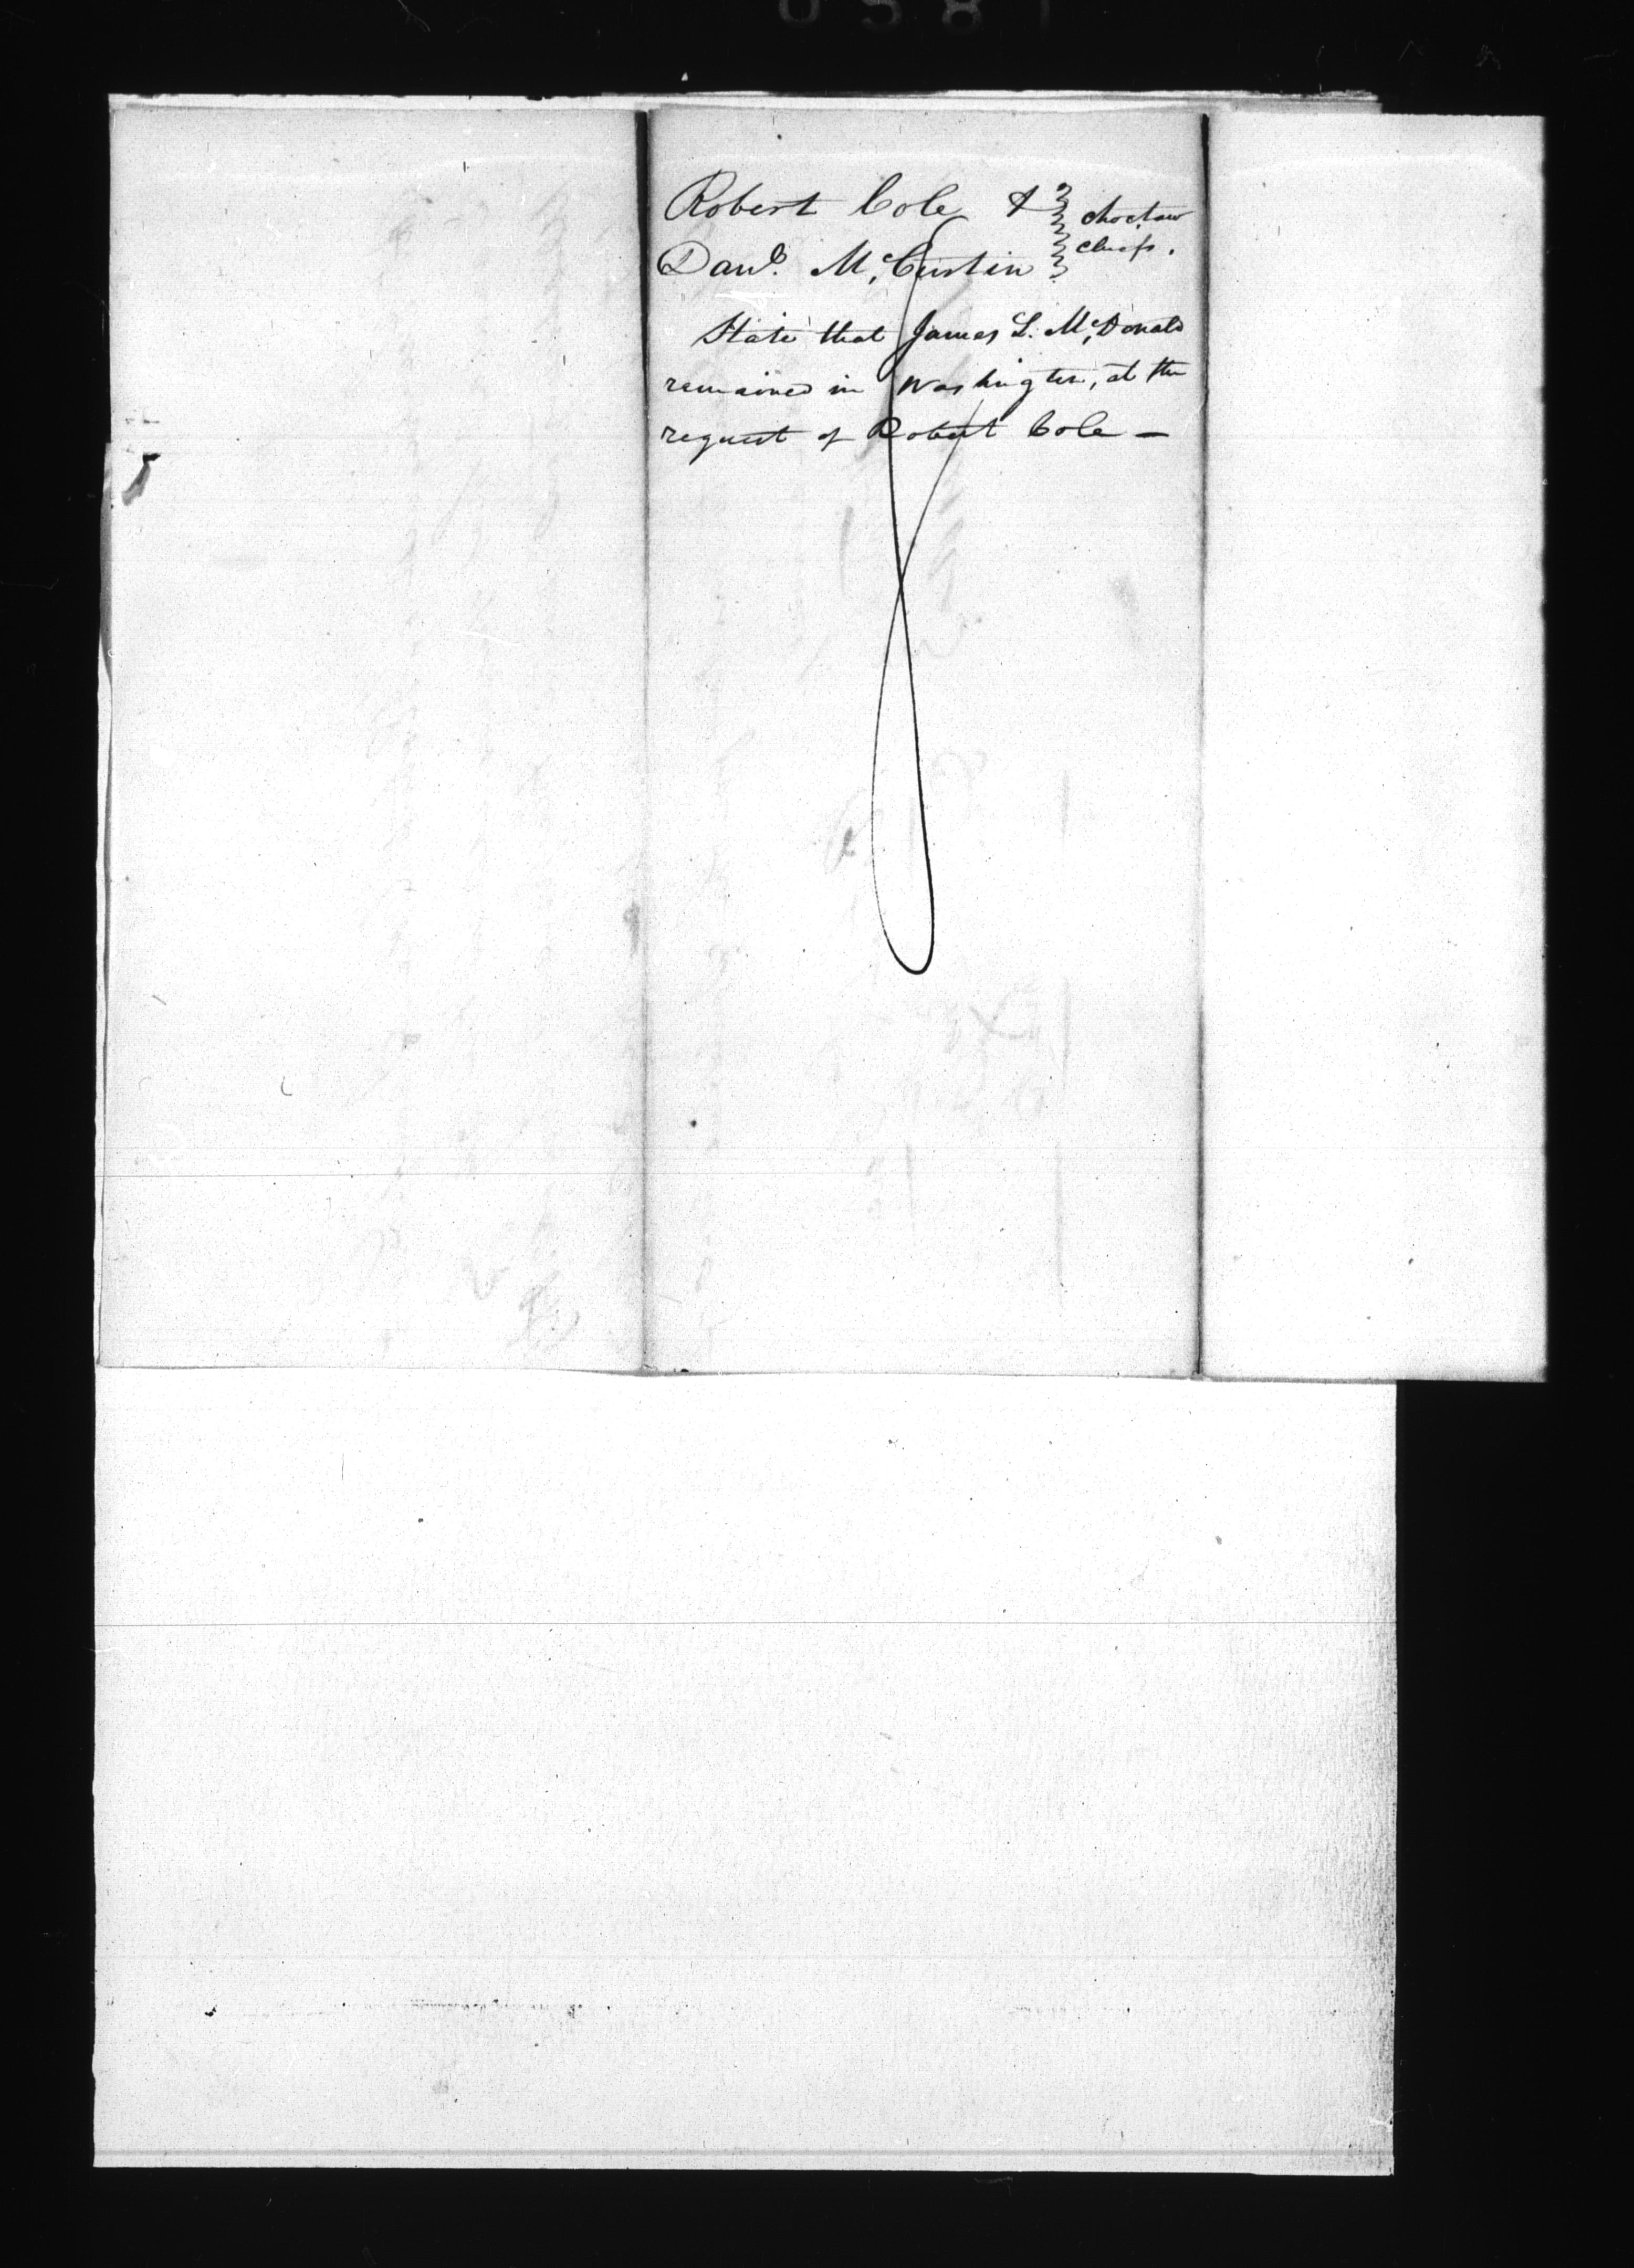 Robert Cole & } Choctaw
Danl. McCurtin } Chiefs.
State that James L. McDonald
remained in Washington, at the
request of Robert Cole —